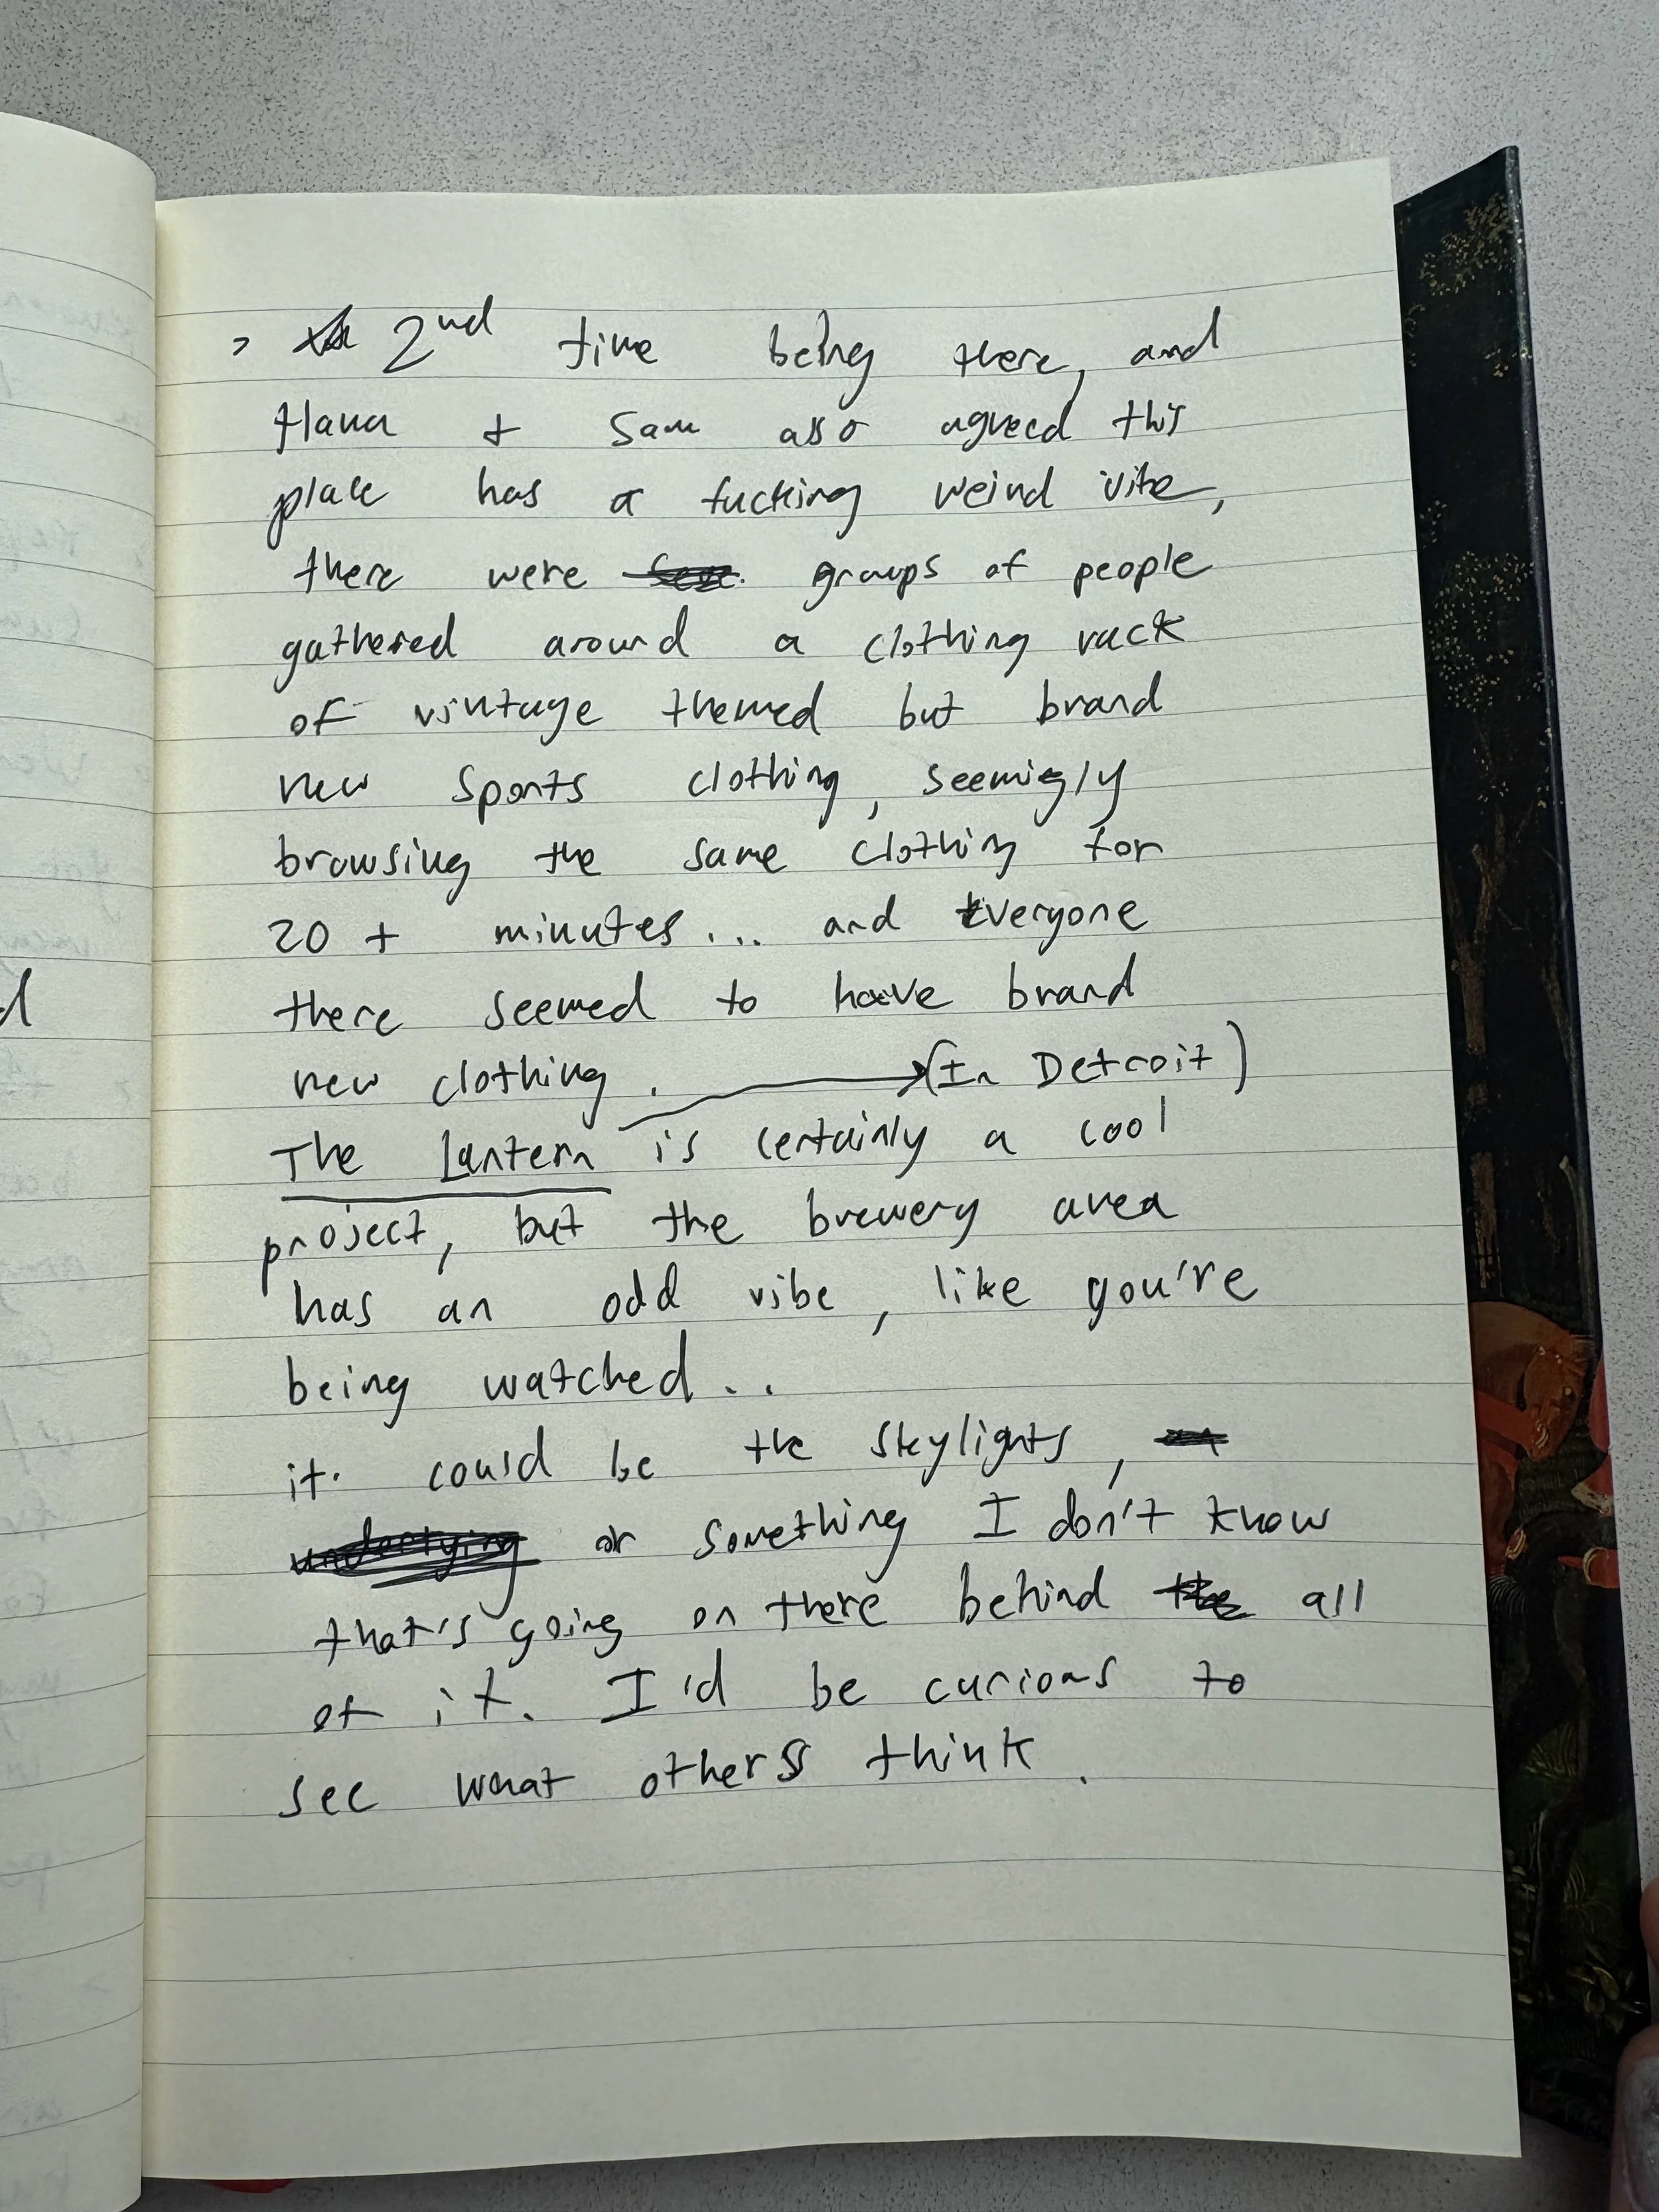 > 2nd time being there, and
Hana + Sam also agreed this
place has a fucking weird vibe,
there were groups of people
gathered around a clothing rack
of vintage themed but brand
new sports clothing, seemigly
browsing the same clothing for
20 + minutes... and Everyone
there seemed to have brand
new clothing. (In Detroit)
The Lantern is certainly a cool
project, but the brewery area
has an odd vibe, like you're
being watched..
it could be the skylights,
underlying or something I don't know
that's going on there behind the all
of it. I'd be curious to
see what others think.
d